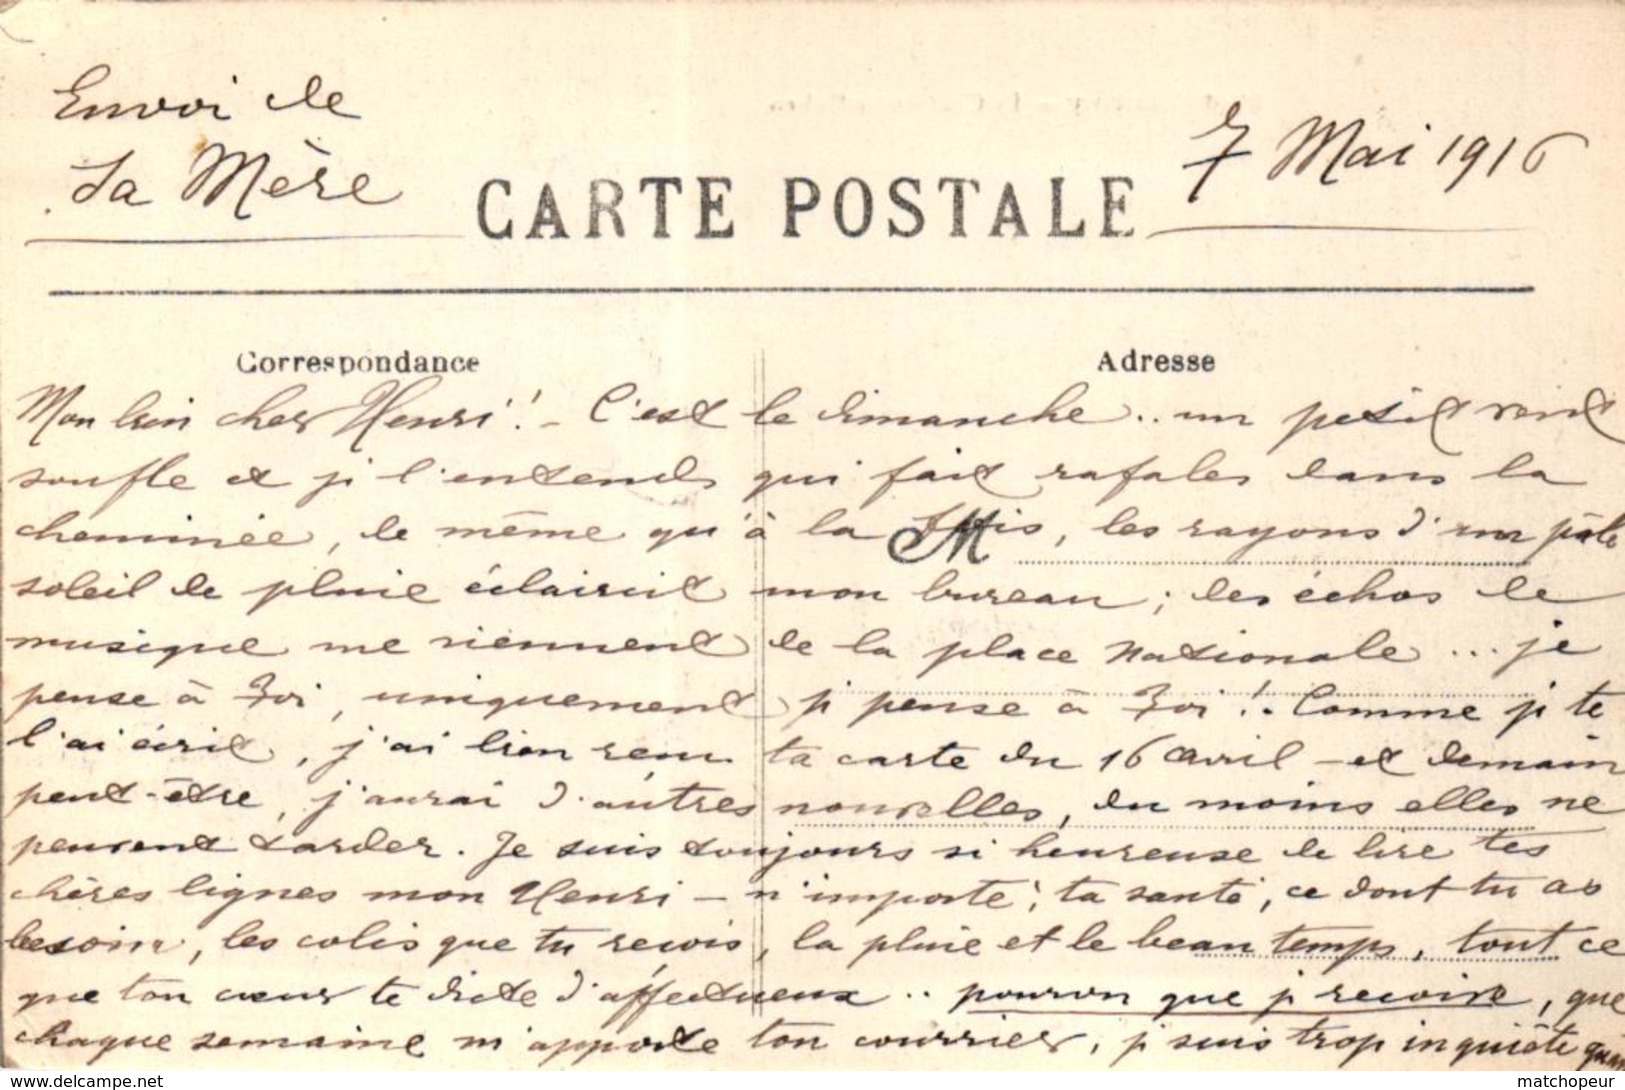 Envoi de
Sa Mère
7 Mai 1916
CARTE POSTALE
Correspondance
Adresse
Mon bien cher Henri ! - C'est le dimanche .. un petit vent
soufle et je l'entends qui fait rafales dans la
cheminée, de même qu'à la fois, les rayons d'un pâle
M
soleil de pluie éclaircit mon bureau ; des échos de
musique me viennent de la place Nationale ... je
pense à Toi, uniquement je pense à Toi ! - Comme je te
l'ai écrit, j'ai bien reçu ta carte du 16 avril - et demain
peut-être, j'aurai d'autres nouvelles, du moins elles ne
peuvent tarder. Je suis toujours si heureuse de lire tes
chères lignes mon Henri - n'importe ; ta santé, ce dont tu as
besoin, les colis que tu reçois, la pluie et le beau temps, tout ce
que ton cœur te dicte d'affectueux .. pourvu que je reçoive, que
chaque semaine m'apporte ton courrier, je suis trop inquiète quan
delcampe.net
matchopeur